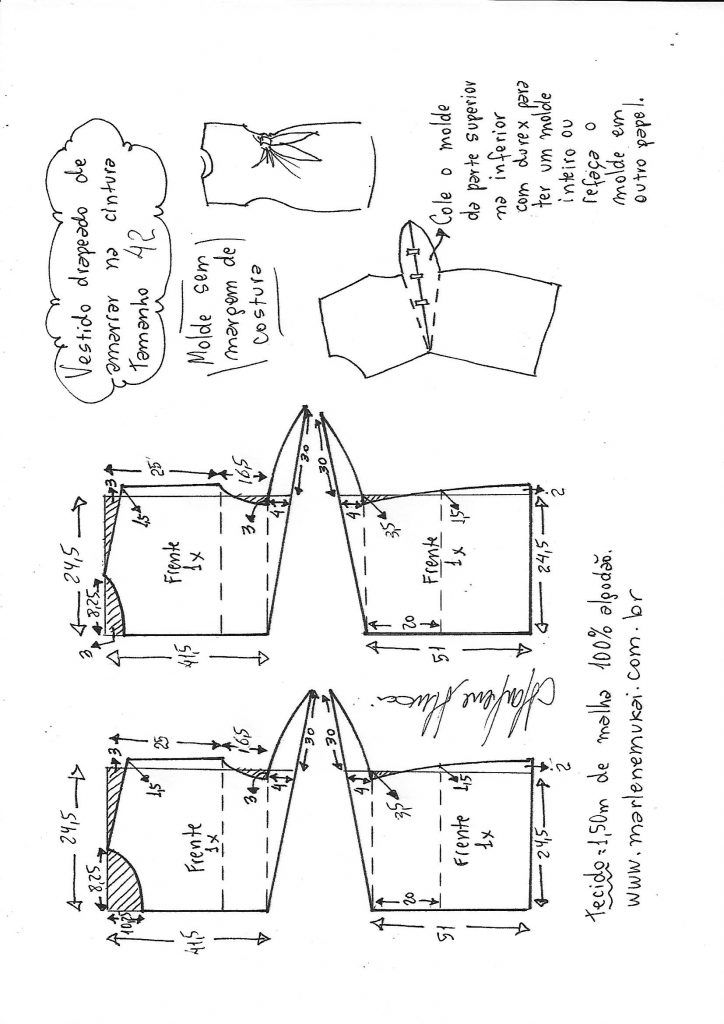 Vestido drapeado de
amarrar na cintura
Tamanho 42
Molde sem
margem de
costura
Cole o molde
da parte superior
na inferior
com durex para
ter um molde
inteiro ou
refaça o
molde em
outro papel.
24,5
8,25
3
3
25
1,5
16,5
Frente
1x
3
4
30
41,5
30
4
3,5
1,5
2
Frente
1x
20
24,5
51
24,5
8,25
10,25
3
25
1,5
16,5
Frente
1x
3
4
30
41,5
30
4
3,5
1,5
2
Frente
1x
20
24,5
51
Marlene Mukai
Tecido = 1,50m de malha 100% algodão.
www.marlenemukai.com.br